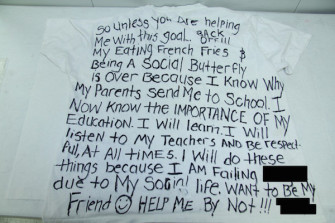 So Unless you are helping
Me With this goal.. BACK
OFF!!!
My EATING FRENCH FRIES &
BEING A SOCIAL Butterfly
is OVER BECAUSE I KNOW WHY
My PARENTS SEND ME to SCHOOL. I
NOW KNOW the IMPORTANCE OF MY
EDUCATION. I WILL LEARN. I WILL
listen to My TEACHERS AND BE RESPECT-
FUL, At All TIMES. I Will do these
things because I AM FAILING
due to My Social life. WANT to BE My
Friend ☺ HELP ME By NOT!!!